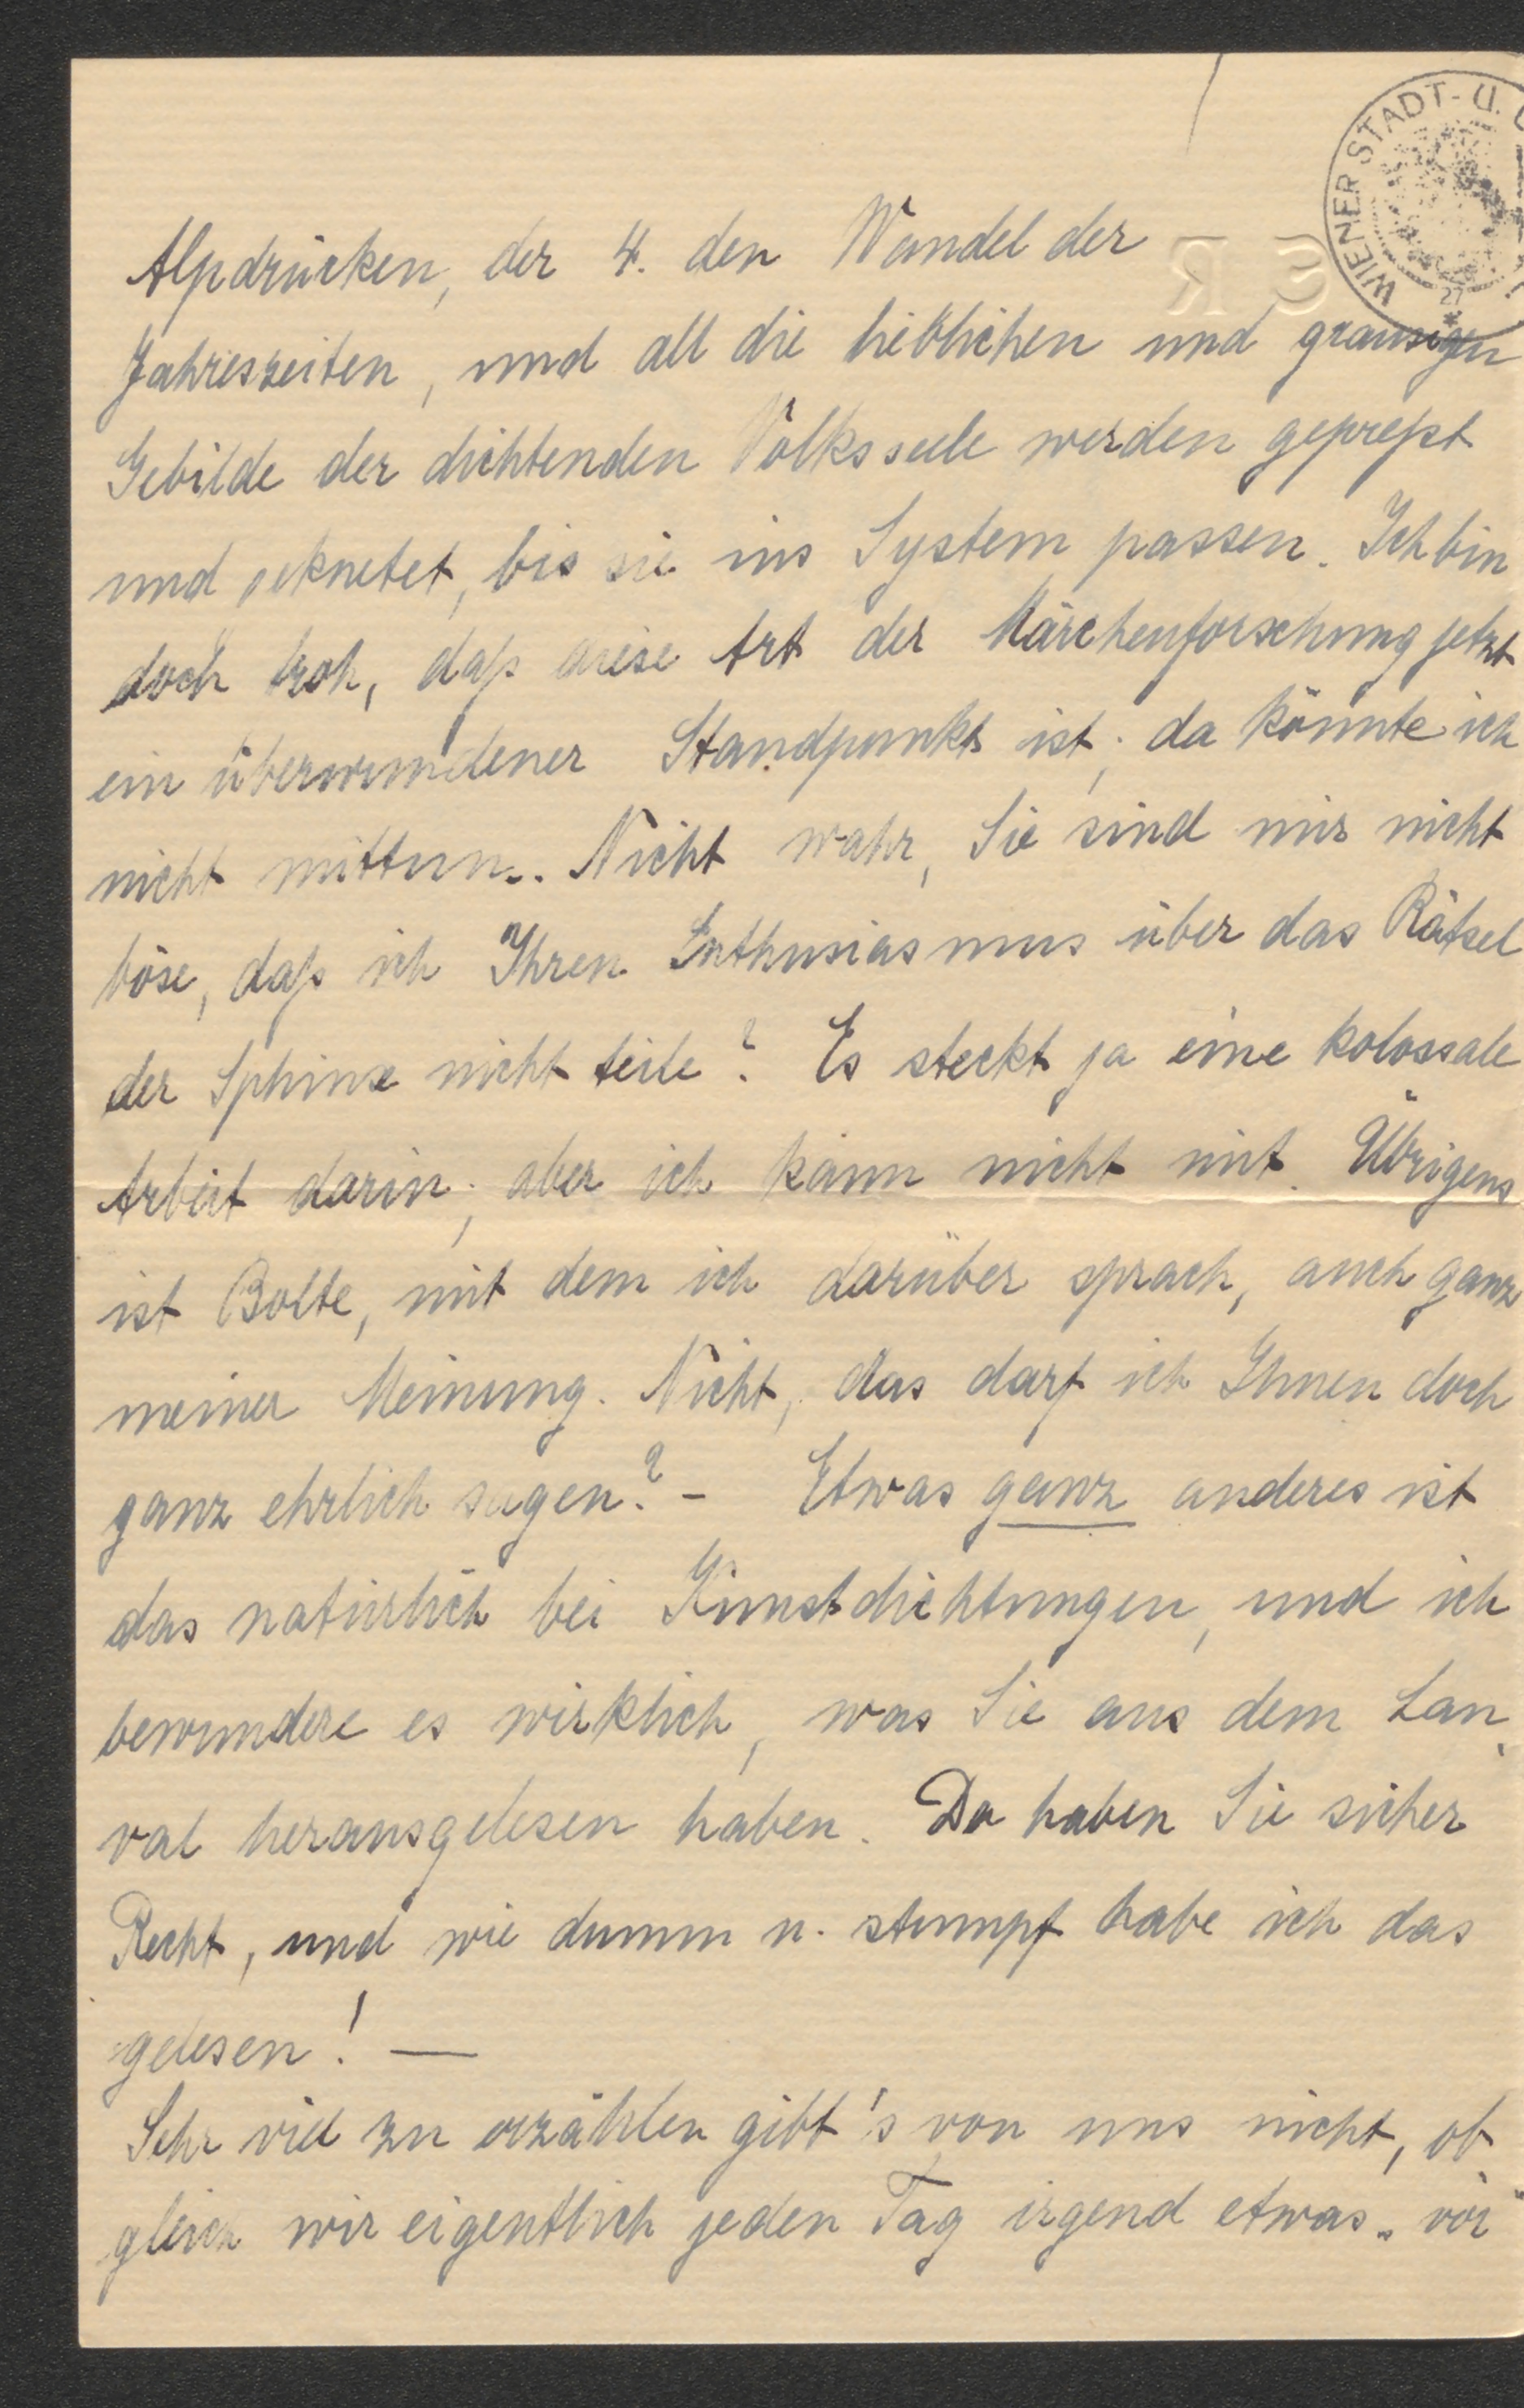 WIENER STADT- U.
27
Alpdrücken, der 4. den Wandel der
Jahreszeiten, und all die lieblichen und grausigen
Gebilde der dichtenden Volksseele werden gepreßt
und geknetet, bis sie ins System passen. Ich bin
doch froh, daß diese Art der Märchenforschung jetzt
ein überwundener Standpunkt ist; da könnte ich
nicht mittun. Nicht wahr, Sie sind mir nicht
böse, daß ich Ihren Enthusiasmus über das Rätsel
der Sphinx nicht teile? Es steckt ja eine kolossale
Arbeit darin; aber ich kann nicht mit. Übrigens
ist Bolte, mit dem ich darüber sprach, auch ganz
meiner Meinung. Nicht, das darf ich Ihnen doch
ganz ehrlich sagen? – Etwas ganz anderes ist
das natürlich bei Kunstdichtungen, und ich
bewundere es wirklich, was Sie aus dem Lan
val herausgelesen haben. Da haben Sie sicher
Recht, und wie dumm u. stumpf habe ich das
gelesen! —
Sehr viel zu erzählen gibt's von uns nicht, ob
gleich wir eigentlich jeden Tag irgend etwas „vor"